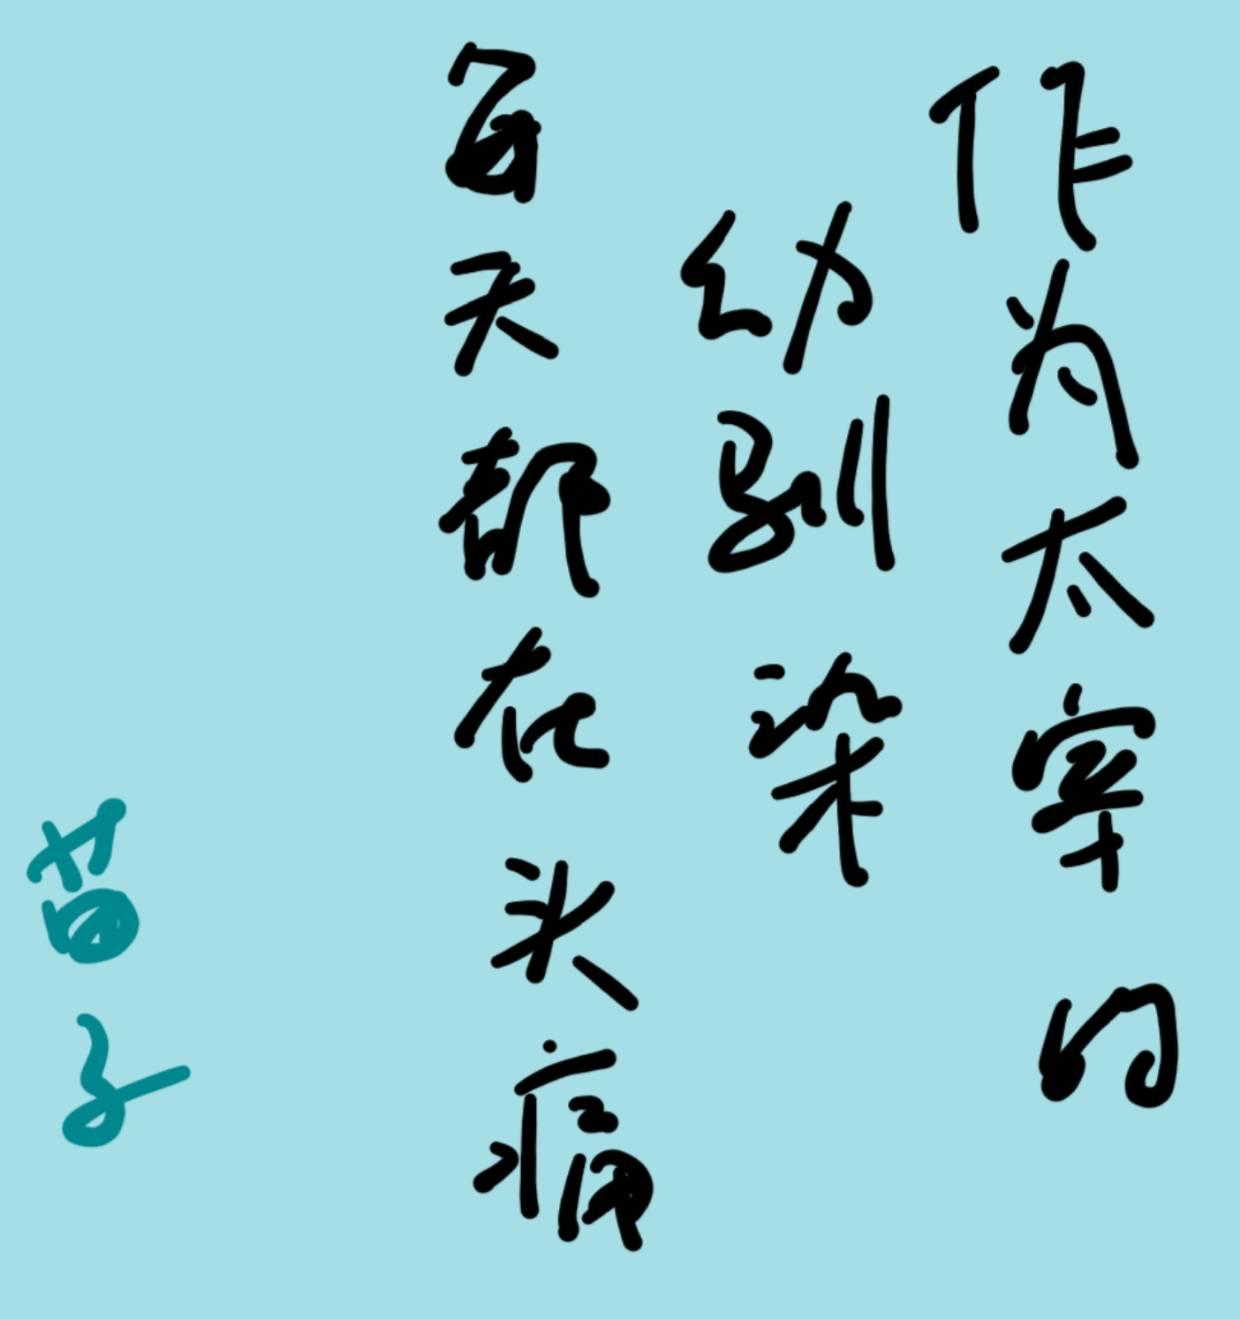 作为太宰的
幼驯染
每天都在头痛
苗子